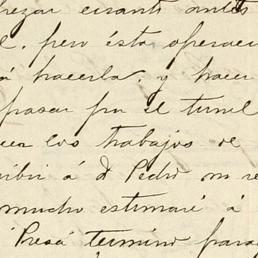 cuanto antes
l, pero ésta operaci
á hacerla, y hacer
pasar por el tunel
los trabajos de
ribir á d Pedro mi re
mucho estimaré á
Presa termino para